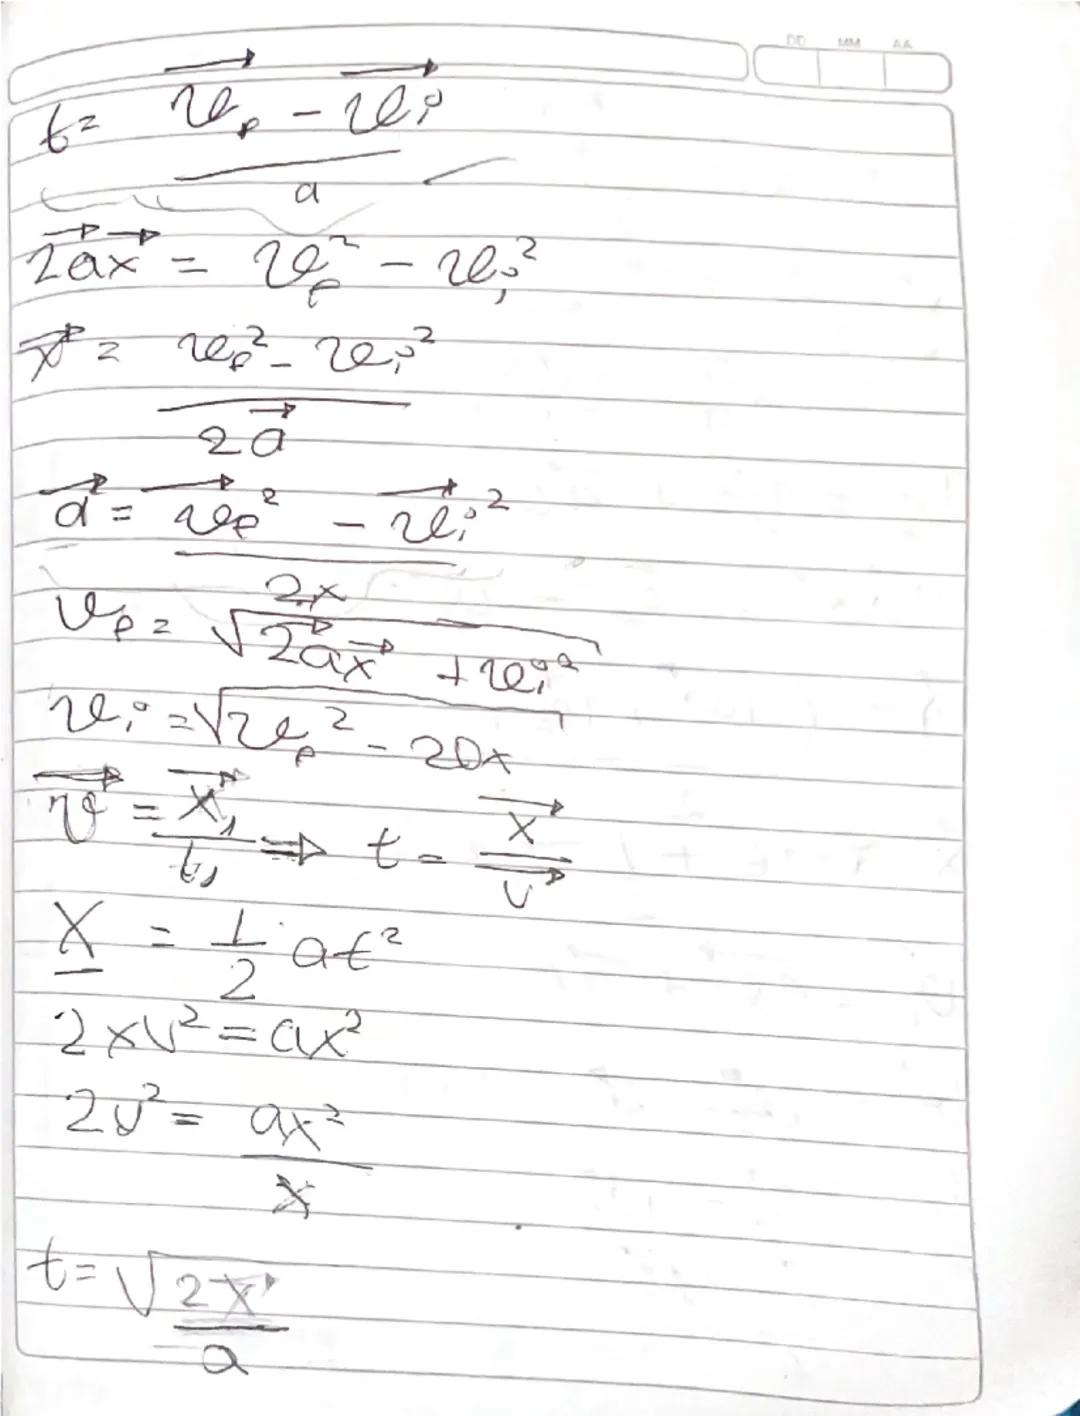 DD MM AA
t = v⃗_f - v⃗_i
a
2a⃗x⃗ = v_f² - v_i²
x⃗ = v_f² - v_i²
2a⃗
a⃗ = v⃗_f² - v⃗_i²
2x
v_f = √2a⃗x⃗ + v_i²
v_i = √v_f² - 2ax
v⃗ = x⃗₁/t₁ ⇒ t = x⃗/v⃗
x = 1/2 at²
2xv² = ax²
2v² = ax²
x
t = √2x⃗
a